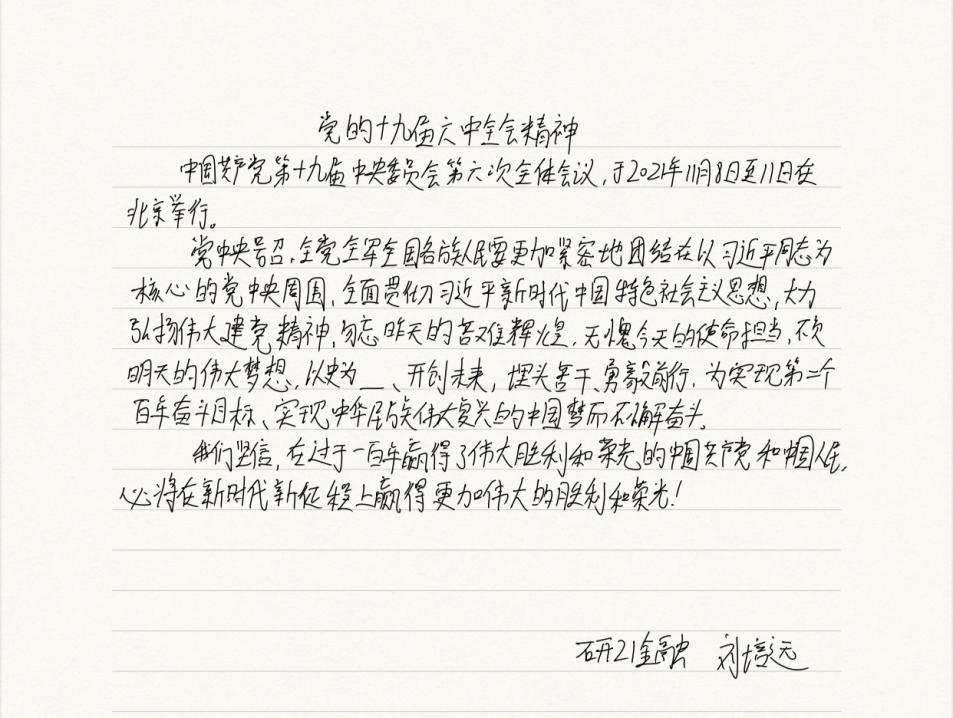 党的十九届六中全会精神
中国共产党第十九届中央委员会第六次全体会议,于2021年11月8日至11日在
北京举行。
党中央号召,全党全军全国各族人民要更加紧密地团结在以习近平同志为
核心的党中央周围,全面贯彻习近平新时代中国特色社会主义思想,大力
弘扬伟大建党精神,勿忘昨天的苦难辉煌,无愧今天的使命担当,不负
明天的伟大梦想,以史为__、开创未来,埋头苦干、勇毅前行,为实现第二个
百年奋斗目标、实现中华民族伟大复兴的中国梦而不懈奋斗。
我们坚信,在过于一百年赢得了伟大胜利和荣光的中国共产党和中国人民,
必将在新时代新征程上赢得更加伟大的胜利和荣光!
研21金融 刘培远